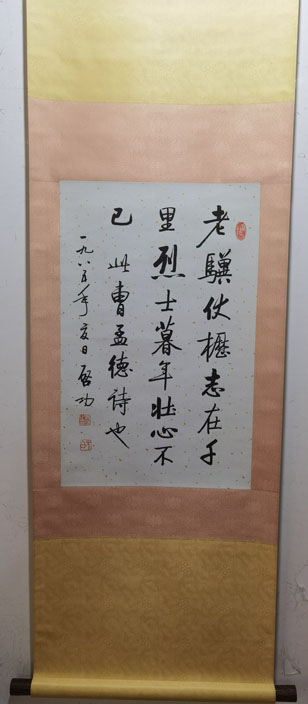 老驥伏櫪志在千
里烈士暮年壯心不
已此曹孟德詩也
一九八五年夏日啓功